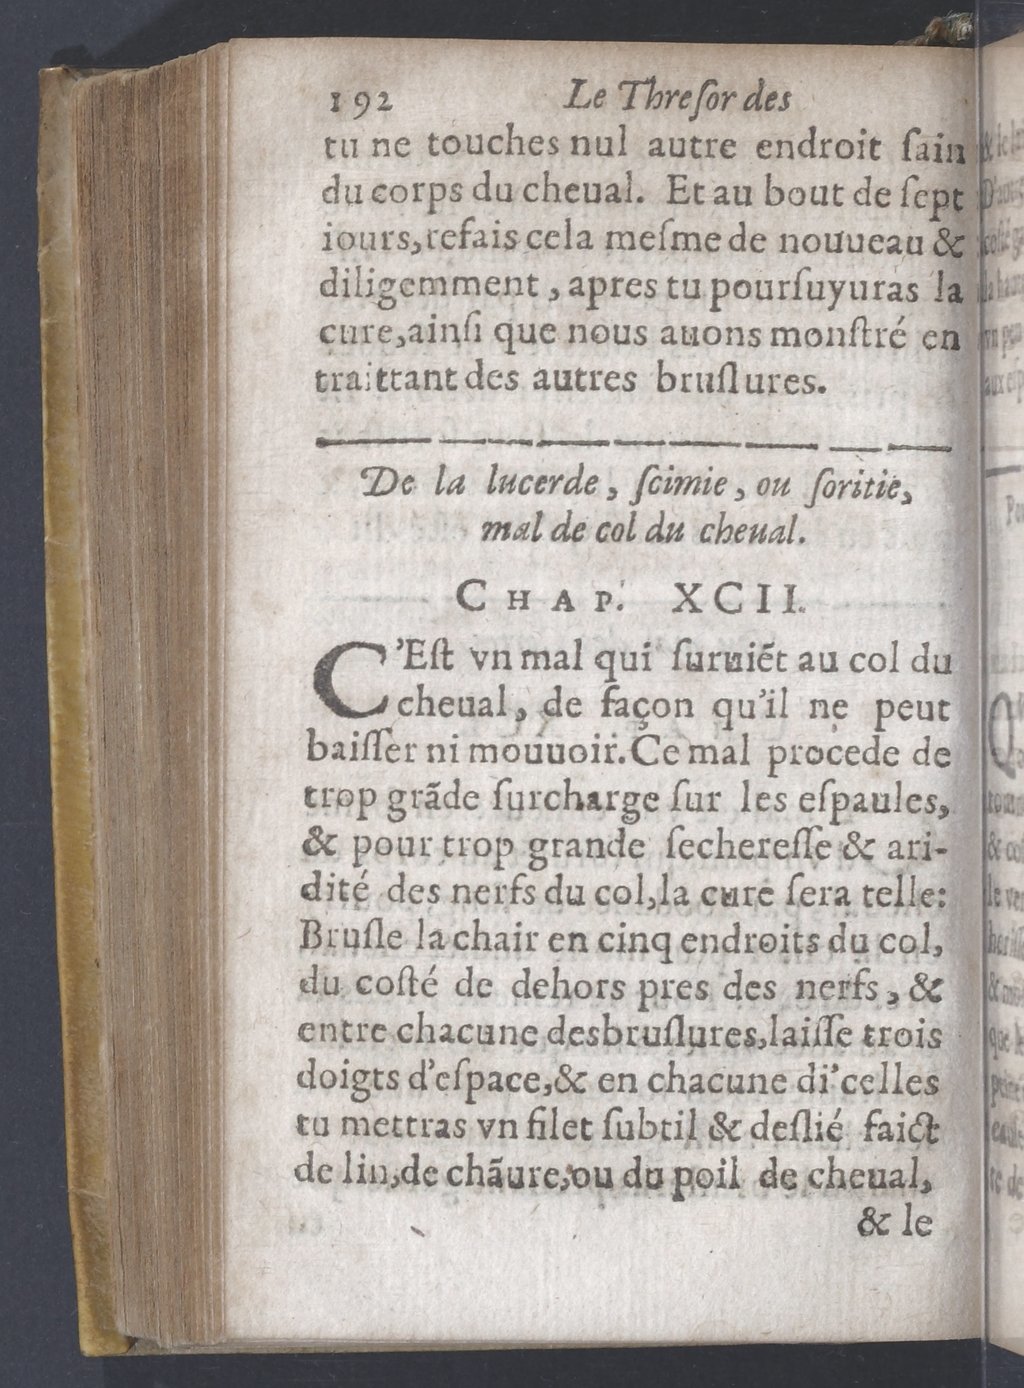 192 Le Threſor des
tu ne touches nul autre endroit ſain
du corps du cheual. Et au bout de ſept
iours, refais cela meſme de nouueau &
diligemment, apres tu pourſuyuras la
cure, ainſi que nous auons monſtré en
traittant des autres bruſlures.
De la lucerde, ſcimie, ou ſoritie,
mal de col du cheual.
CHAP. XCII.
C'Eſt vn mal qui ſuruiẽt au col du
cheual, de façon qu'il ne peut
baiſſer ni mouuoir. Ce mal procede de
trop grãde ſurcharge ſur les eſpaules,
& pour trop grande ſechereſſe & ari-
dité des nerfs du col, la cure ſera telle:
Bruſle la chair en cinq endroits du col,
du coſté de dehors pres des nerfs, &
entre chacune des bruſlures, laiſſe trois
doigts d'eſpace, & en chacune di'celles
tu mettras vn filet ſubtil & deſlié faict
de lin, de chãure, ou du poil de cheual,
& le